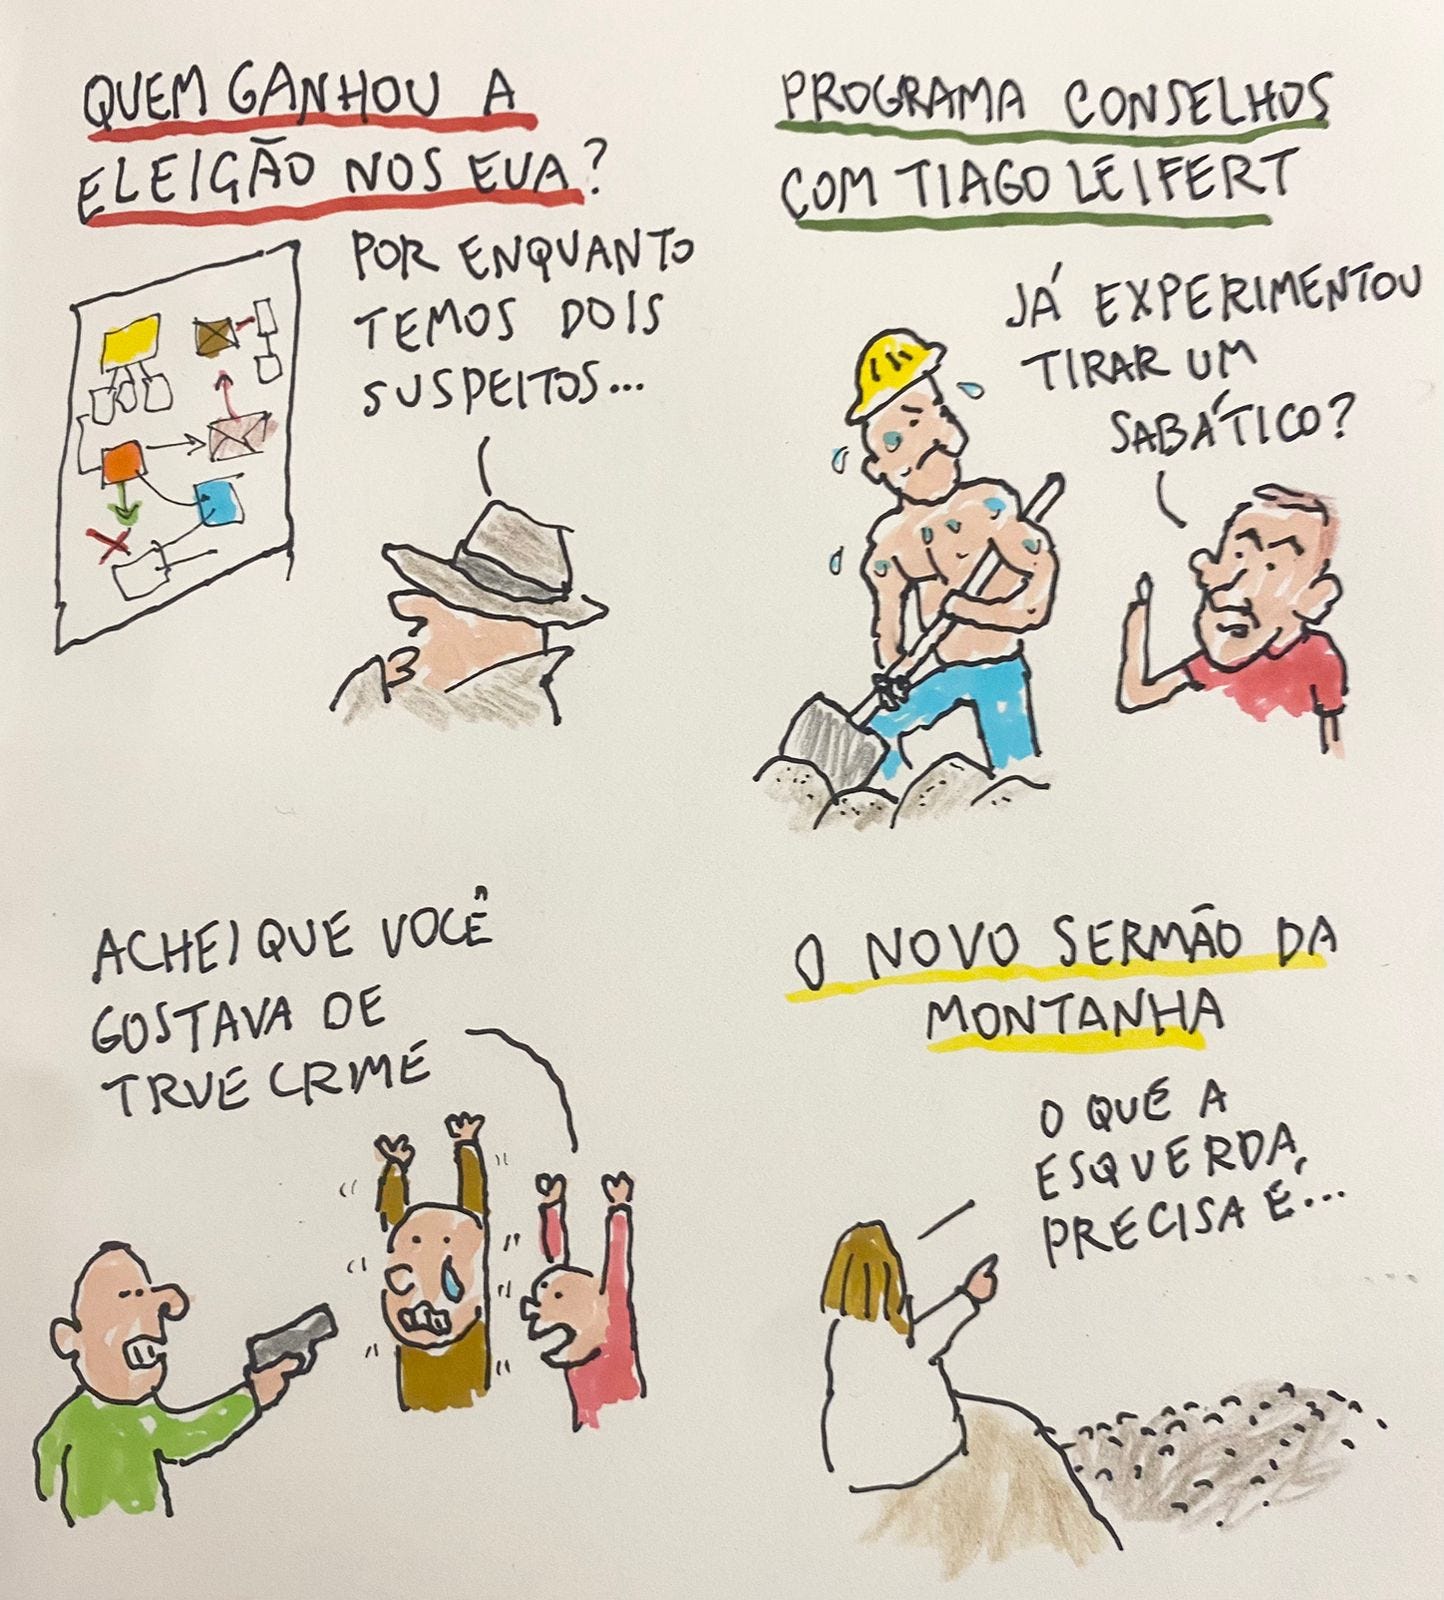 QUEM GANHOU A
ELEIÇÃO NOS EUA?
POR ENQUANTO
TEMOS DOIS
SUSPEITOS...
PROGRAMA CONSELHOS
COM TIAGO LEIFERT
JÁ EXPERIMENTOU
TIRAR UM
SABÁTICO?
ACHEI QUE VOCÊ
GOSTAVA DE
TRUE CRIME
O NOVO SERMÃO DA
MONTANHA
O QUE A
ESQUERDA
PRECISA É...